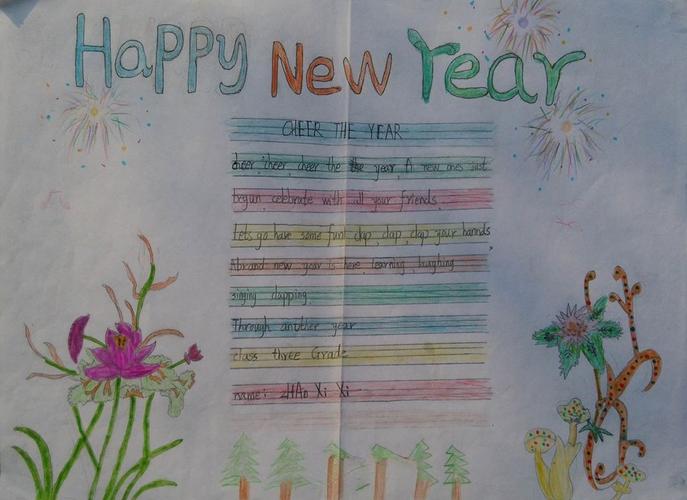 Happy New Year
CHEER THE YEAR
cheer, cheer, cheer the the year, A new ones just
begun, celebrate with all your friends,
Lets go have some fun! clap, clap, clap your hannds,
Abrand new year is here, learning, laughing
singing clapping,
Through another year
class three Grade
name: ZHAo Xi Xi